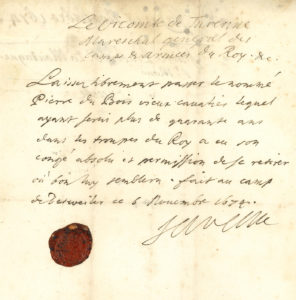 Le Vicomte de Turenne
Mareschal general des
camps & armées du Roy &c.
Laissez librement passer le nommé
Pierre du Bois vieux cavalier lequel
ayant servis plus de quarante ans
dans les troupes du Roy a eu son
congé absolu et permission de se retirer
où bon luy semblera. fait au camp
de Detweiler ce 6 Novembre 1674.
Turenne